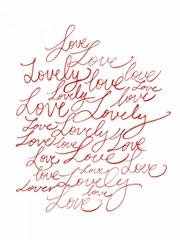 Love
Love
Lovely love love
Love Love love
Love Lovely
Love Lovely
Love love Love
Love Love Love
love Love
Lovers Lovely
Love Love